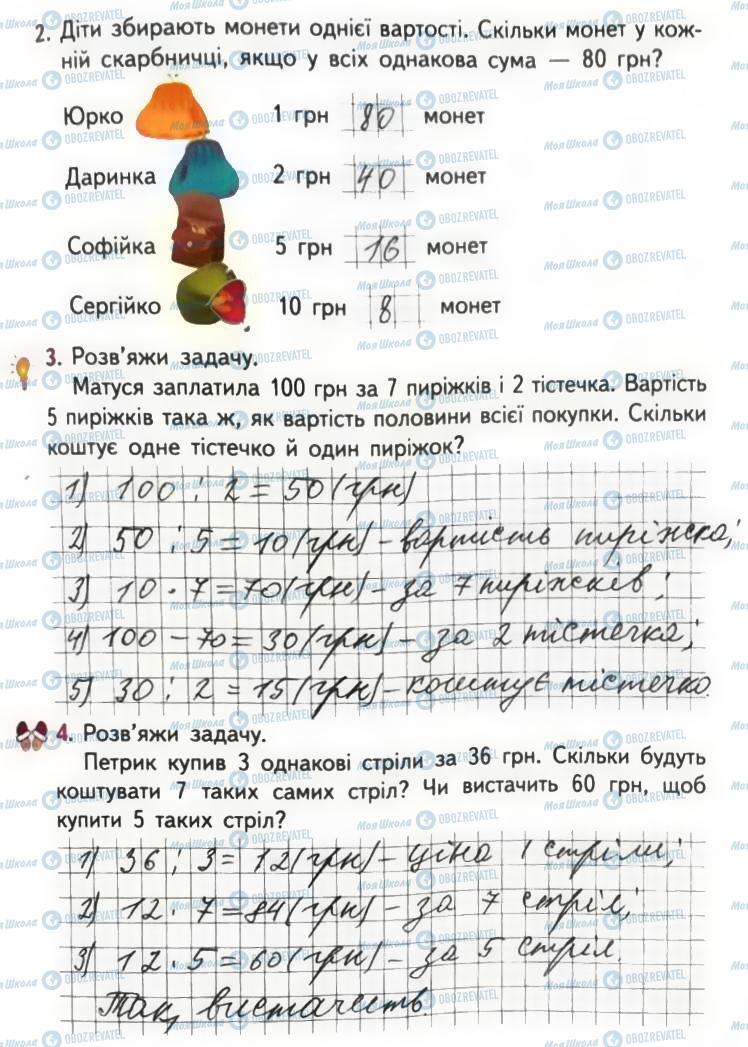 2. Діти збирають монети однієї вартості. Скільки монет у кож-
ній скарбничці, якщо у всіх однакова сума — 80 грн?
Юрко 1 грн 80 монет
Даринка 2 грн 40 монет
Софійка 5 грн 16 монет
Сергійко 10 грн 8 монет
3. Розв'яжи задачу.
Матуся заплатила 100 грн за 7 пиріжків і 2 тістечка. Вартість
5 пиріжків така ж, як вартість половини всієї покупки. Скільки
коштує одне тістечко й один пиріжок?
1) 100 : 2 = 50 (грн)
2) 50 : 5 = 10 (грн) - вартість пиріжка;
3) 10 · 7 = 70 (грн) - за 7 пиріжків;
4) 100 - 70 = 30 (грн) - за 2 тістечка;
5) 30 : 2 = 15 (грн) - коштує тістечко.
4. Розв'яжи задачу.
Петрик купив 3 однакові стріли за 36 грн. Скільки будуть
коштувати 7 таких самих стріл? Чи вистачить 60 грн, щоб
купити 5 таких стріл?
1) 36 : 3 = 12 (грн) - ціна 1 стріли;
2) 12 · 7 = 84 (грн) - за 7 стріл;
3) 12 · 5 = 60 (грн) - за 5 стріл.
Так, вистачить.